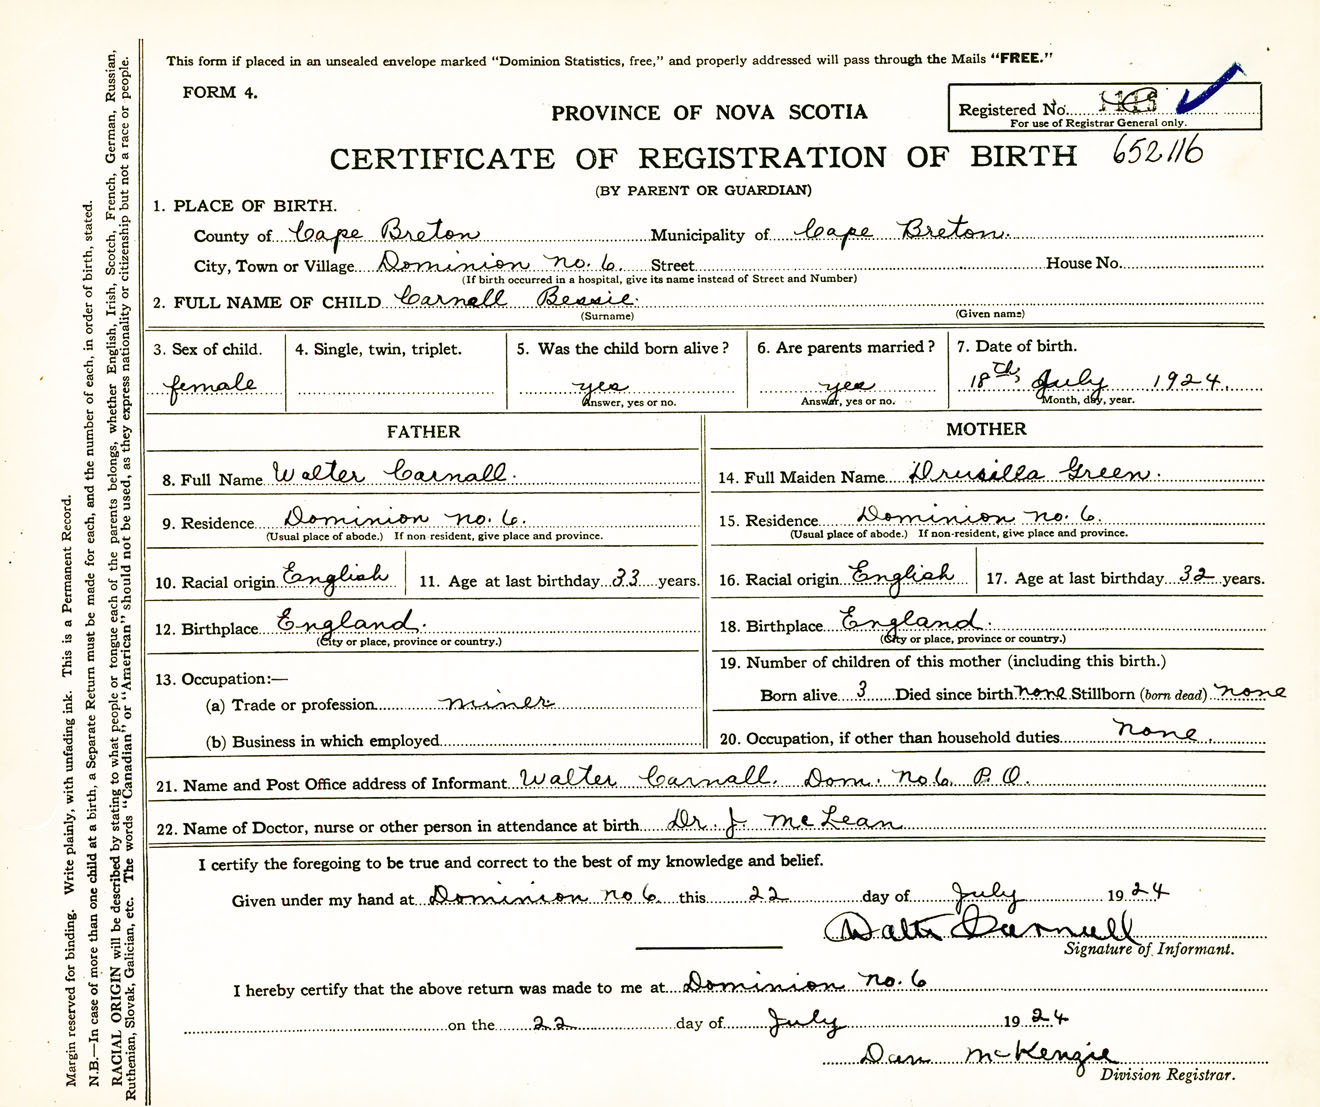 This form if placed in an unsealed envelope marked "Dominion Statistics, free," and properly addressed will pass through the Mails "FREE."
FORM 4.
PROVINCE OF NOVA SCOTIA
Registered No.
For use of Registrar General only.
CERTIFICATE OF REGISTRATION OF BIRTH 652116
(BY PARENT OR GUARDIAN)
1. PLACE OF BIRTH.
County of Cape Breton Municipality of Cape Breton.
City, Town or Village Dominion no. 6. Street House No.
(If birth occurred in a hospital, give its name instead of Street and Number)
2. FULL NAME OF CHILD Carnell Bessie.
(Surname) (Given name)
3. Sex of child. 4. Single, twin, triplet. 5. Was the child born alive? 6. Are parents married? 7. Date of birth.
female yes yes 18th, July 1924.
Answer, yes or no. Answer, yes or no. Month, day, year.
FATHER MOTHER
8. Full Name Walter Carnall. 14. Full Maiden Name Drusilla Green.
9. Residence Dominion no. 6. 15. Residence Dominion no. 6.
(Usual place of abode.) If non resident, give place and province. (Usual place of abode.) If non-resident, give place and province.
10. Racial origin English 11. Age at last birthday 33 years. 16. Racial origin English 17. Age at last birthday 32 years.
12. Birthplace England. 18. Birthplace England.
(City or place, province or country.) (City or place, province or country.)
13. Occupation:— 19. Number of children of this mother (including this birth.)
(a) Trade or profession miner Born alive 3 Died since birth none Stillborn (born dead) none
(b) Business in which employed 20. Occupation, if other than household duties none.
21. Name and Post Office address of Informant Walter Carnall. Dom. no. 6 P.O.
22. Name of Doctor, nurse or other person in attendance at birth Dr. J. McLean
I certify the foregoing to be true and correct to the best of my knowledge and belief.
Given under my hand at Dominion no 6. this 22 day of July 1924
Walter Carnall
Signature of Informant.
I hereby certify that the above return was made to me at Dominion no. 6
on the 22 day of July 1924
Dan McKenzie
Division Registrar.
Margin reserved for binding. Write plainly, with unfading ink. This is a Permanent Record.
N.B.—In case of more than one child at a birth, a Separate Return must be made for each, and the number of each, in order of birth, stated.
RACIAL ORIGIN will be described by stating to what people or tongue each of the parents belongs, whether English, Irish, Scotch, French, German, Russian,
Ruthenian, Slovak, Galician, etc. The words "Canadian" or "American" should not be used, as they express nationality or citizenship but not a race or people.